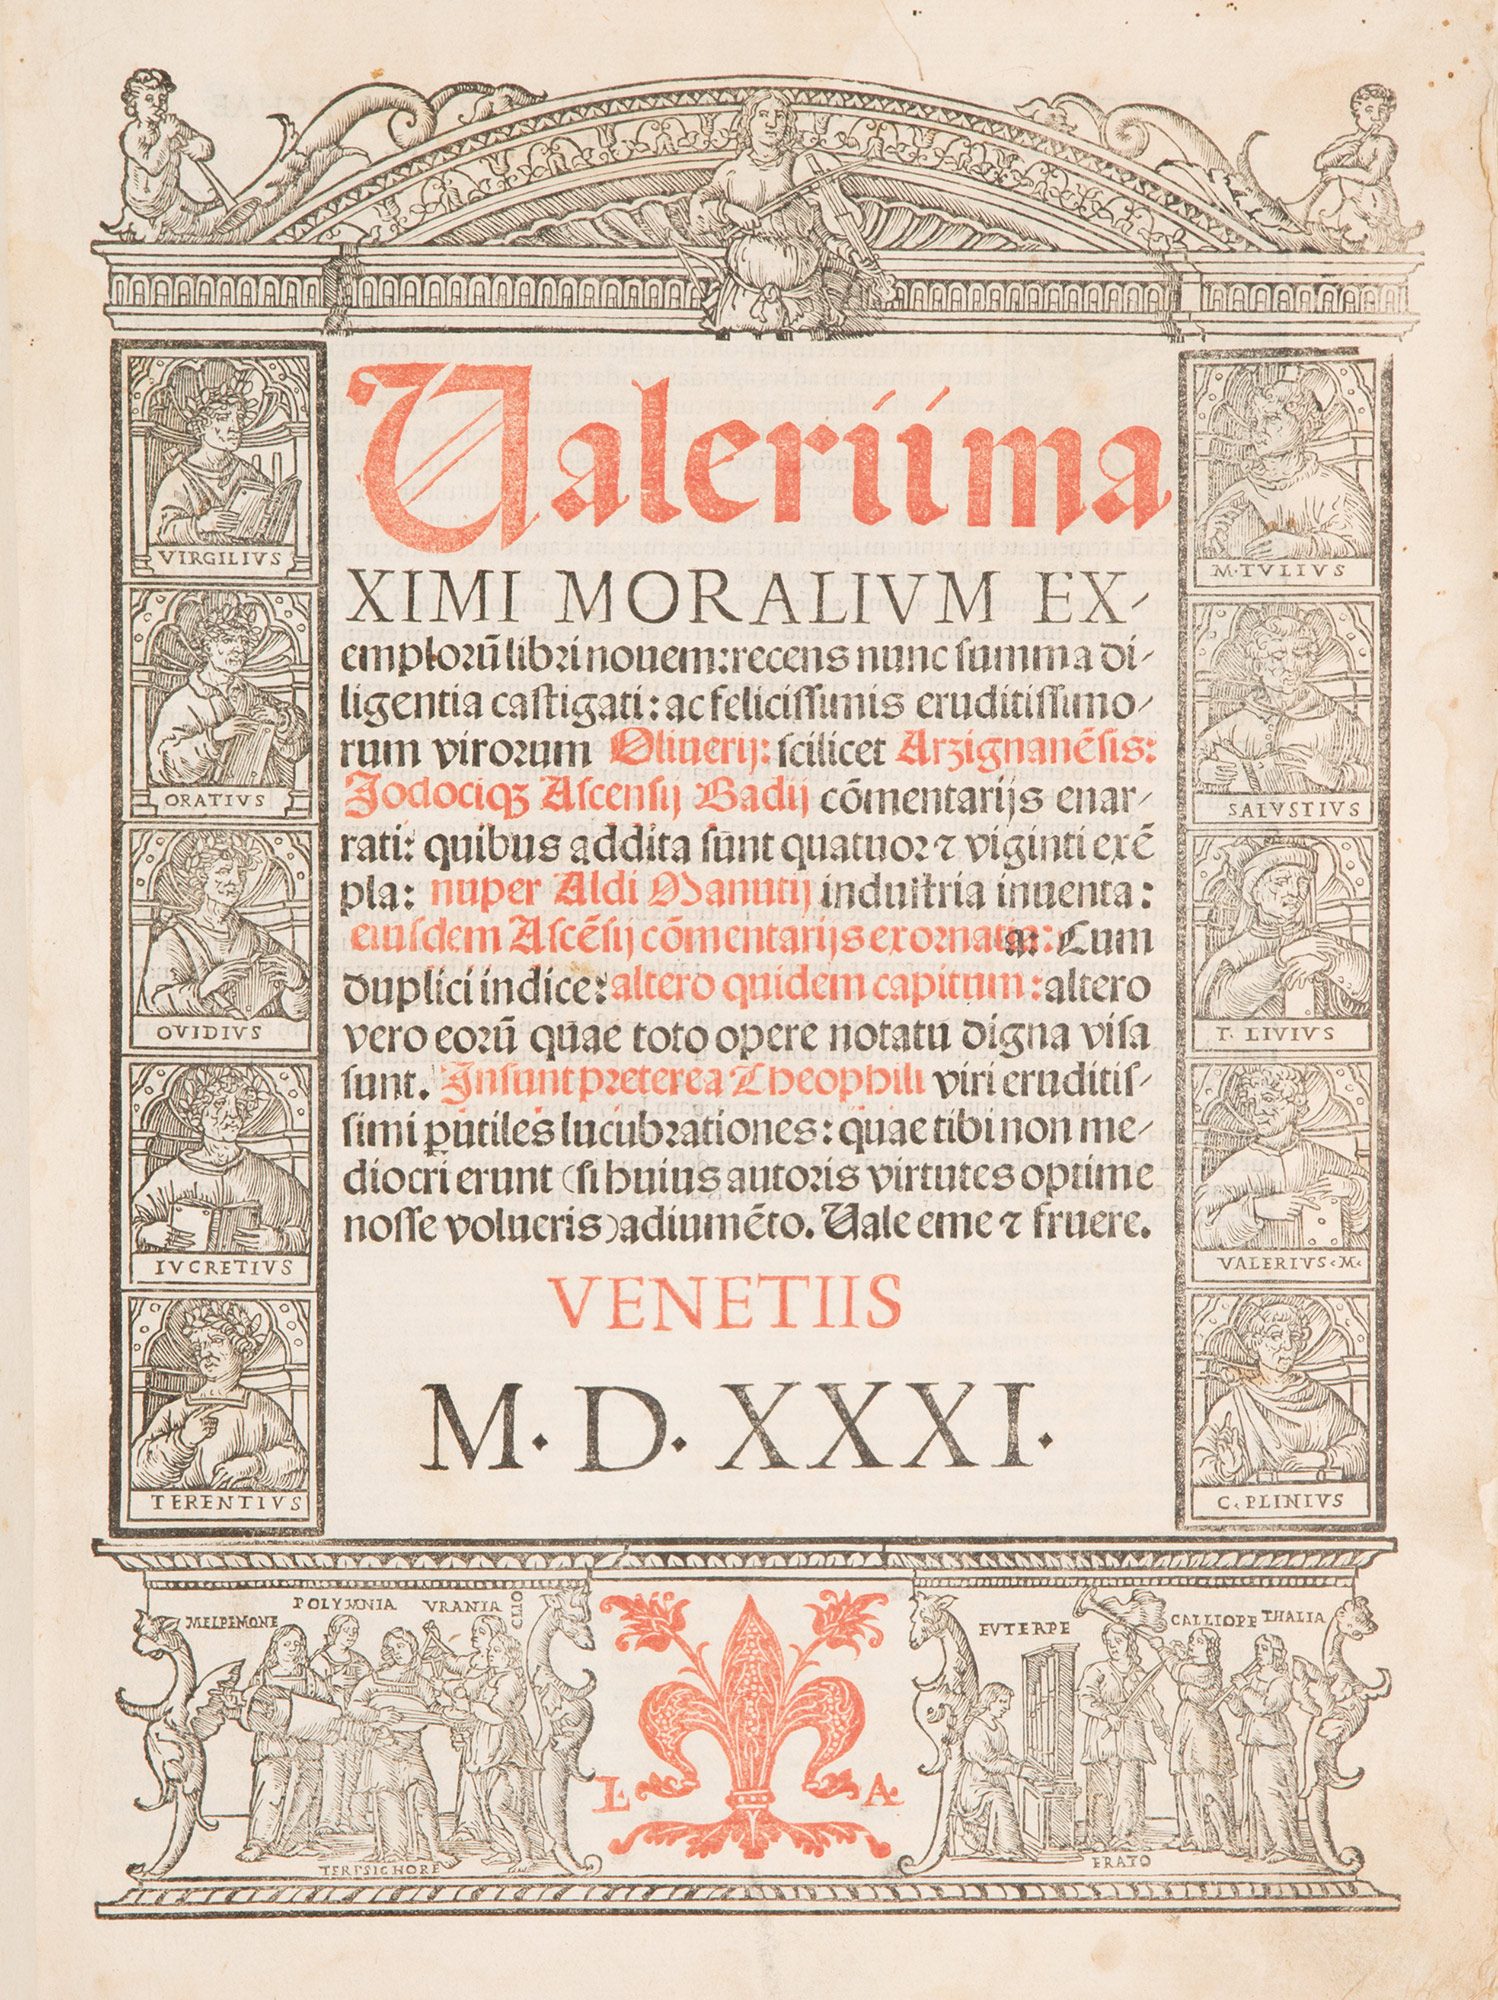 Ualeríí ma
XIMI MORALIVM EX-
emploꝛū libꝛi nouem: recens nunc summa di-
ligentia castigati: ac felicissimis eruditissimo-
rum viroꝛum Oliuerij: scilicet Arzignanēsis:
Jodociqꝫ Ascensij Badij cōmentarijs enar-
rati: quibus addita sunt quatuoꝛ ⁊ viginti exē
pla: nuper Aldi Manutij industria inuenta:
eiusdem Ascēsij cōmentarijs exornata: Cum
duplici indice: altero quidem capitum: altero
vero eoꝛū quae toto opere notatu digna visa
sunt. Insunt pꝛeterea Theophili viri eruditis-
simi ꝑutiles lucubꝛationes: quae tibi non me-
diocri erunt (si huius autoꝛis virtutes optime
nosse volueris) adiumēto. Uale eme ⁊ fruere.
VENETIIS
M. D. XXXI.
VIRGILIVS
ORATIVS
OVIDIVS
IVCRETIVS
TERENTIVS
M. TVLIVS
SALVSTIVS
T. LIVIVS
VALERIVS. M.
C. PLINIVS
MELPEMONE
POLYMNIA
VRANIA
CLIO
TERPSICHORE
L. A.
EVTERPE
CALLIOPE
THALIA
ERATO